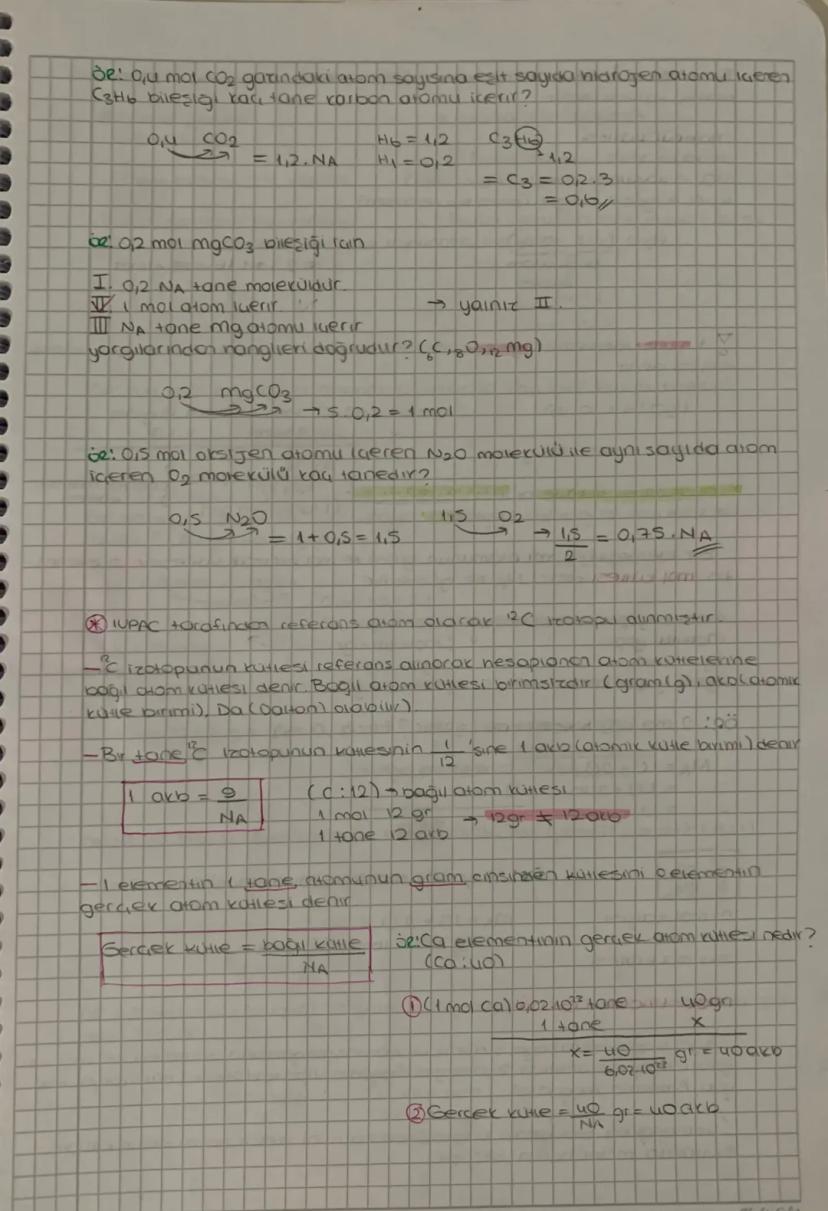 ör: 0,4 mol CO2 gazındaki atom sayısına eşit sayıda hidrojen atomu içeren
C3H6 bileşiği kaç tane karbon atomu içerir?
0,4 CO2 = 1,2.NA
H6 = 1,2
H1 = 0,2
C3H6
1,2
= C3 = 0,2.3
= 0,6//
ör: 0,2 mol mgCO3 bileşiği için
I. 0,2 NA tane moleküldür.
II 1 mol atom içerir.
III NA tane mg atomu içerir
→ yalnız II.
yargılarından hangileri doğrudur? (6C, 8O, 12mg)
0,2 mgCO3 → 5.0,2 = 1 mol
ör: 0,5 mol oksijen atomu içeren N2O molekülü ile aynı sayıda atom
içeren O2 molekülü kaç tanedir?
0,5 N2O = 1+0,5 = 1,5
1,5 O2 → 1,5/2 = 0,75.NA
* IUPAC tarafından referans atom olarak 12C izotopu alınmıştır.
- 12C izotopunun kütlesi referans alınarak hesaplanan atom kütlelerine
bağıl atom kütlesi denir. Bağıl atom kütlesi birimsizdir (gram(g), akb(atomik
kütle birimi), Da(Dalton) olabilir).
- Bir tane 12C izotopunun kütlesinin 1/12 'sine 1 akb(atomik kütle birimi) denir
1 akb = g/NA
(C:12) → bağıl atom kütlesi
1 mol 12 gr
1 tane 12 akb
→ 12gr ≠ 12akb
- 1 elementin 1 tane atomunun gram cinsinden kütlesini o elementin
gerçek atom kütlesi denir
Gerçek kütle = bağıl kütle/NA
ör: Ca elementinin gerçek atom kütlesi nedir?
(Ca:40)
① (1 mol Ca) 6,02.10²³ tane 40gr
1 tane x
x = 40/6,02.10²³ gr = 40akb
② Gerçek kütle = 40/NA gr = 40akb